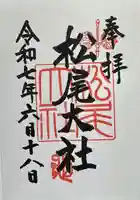 奉拝
松尾大社
令和七年六月十八日